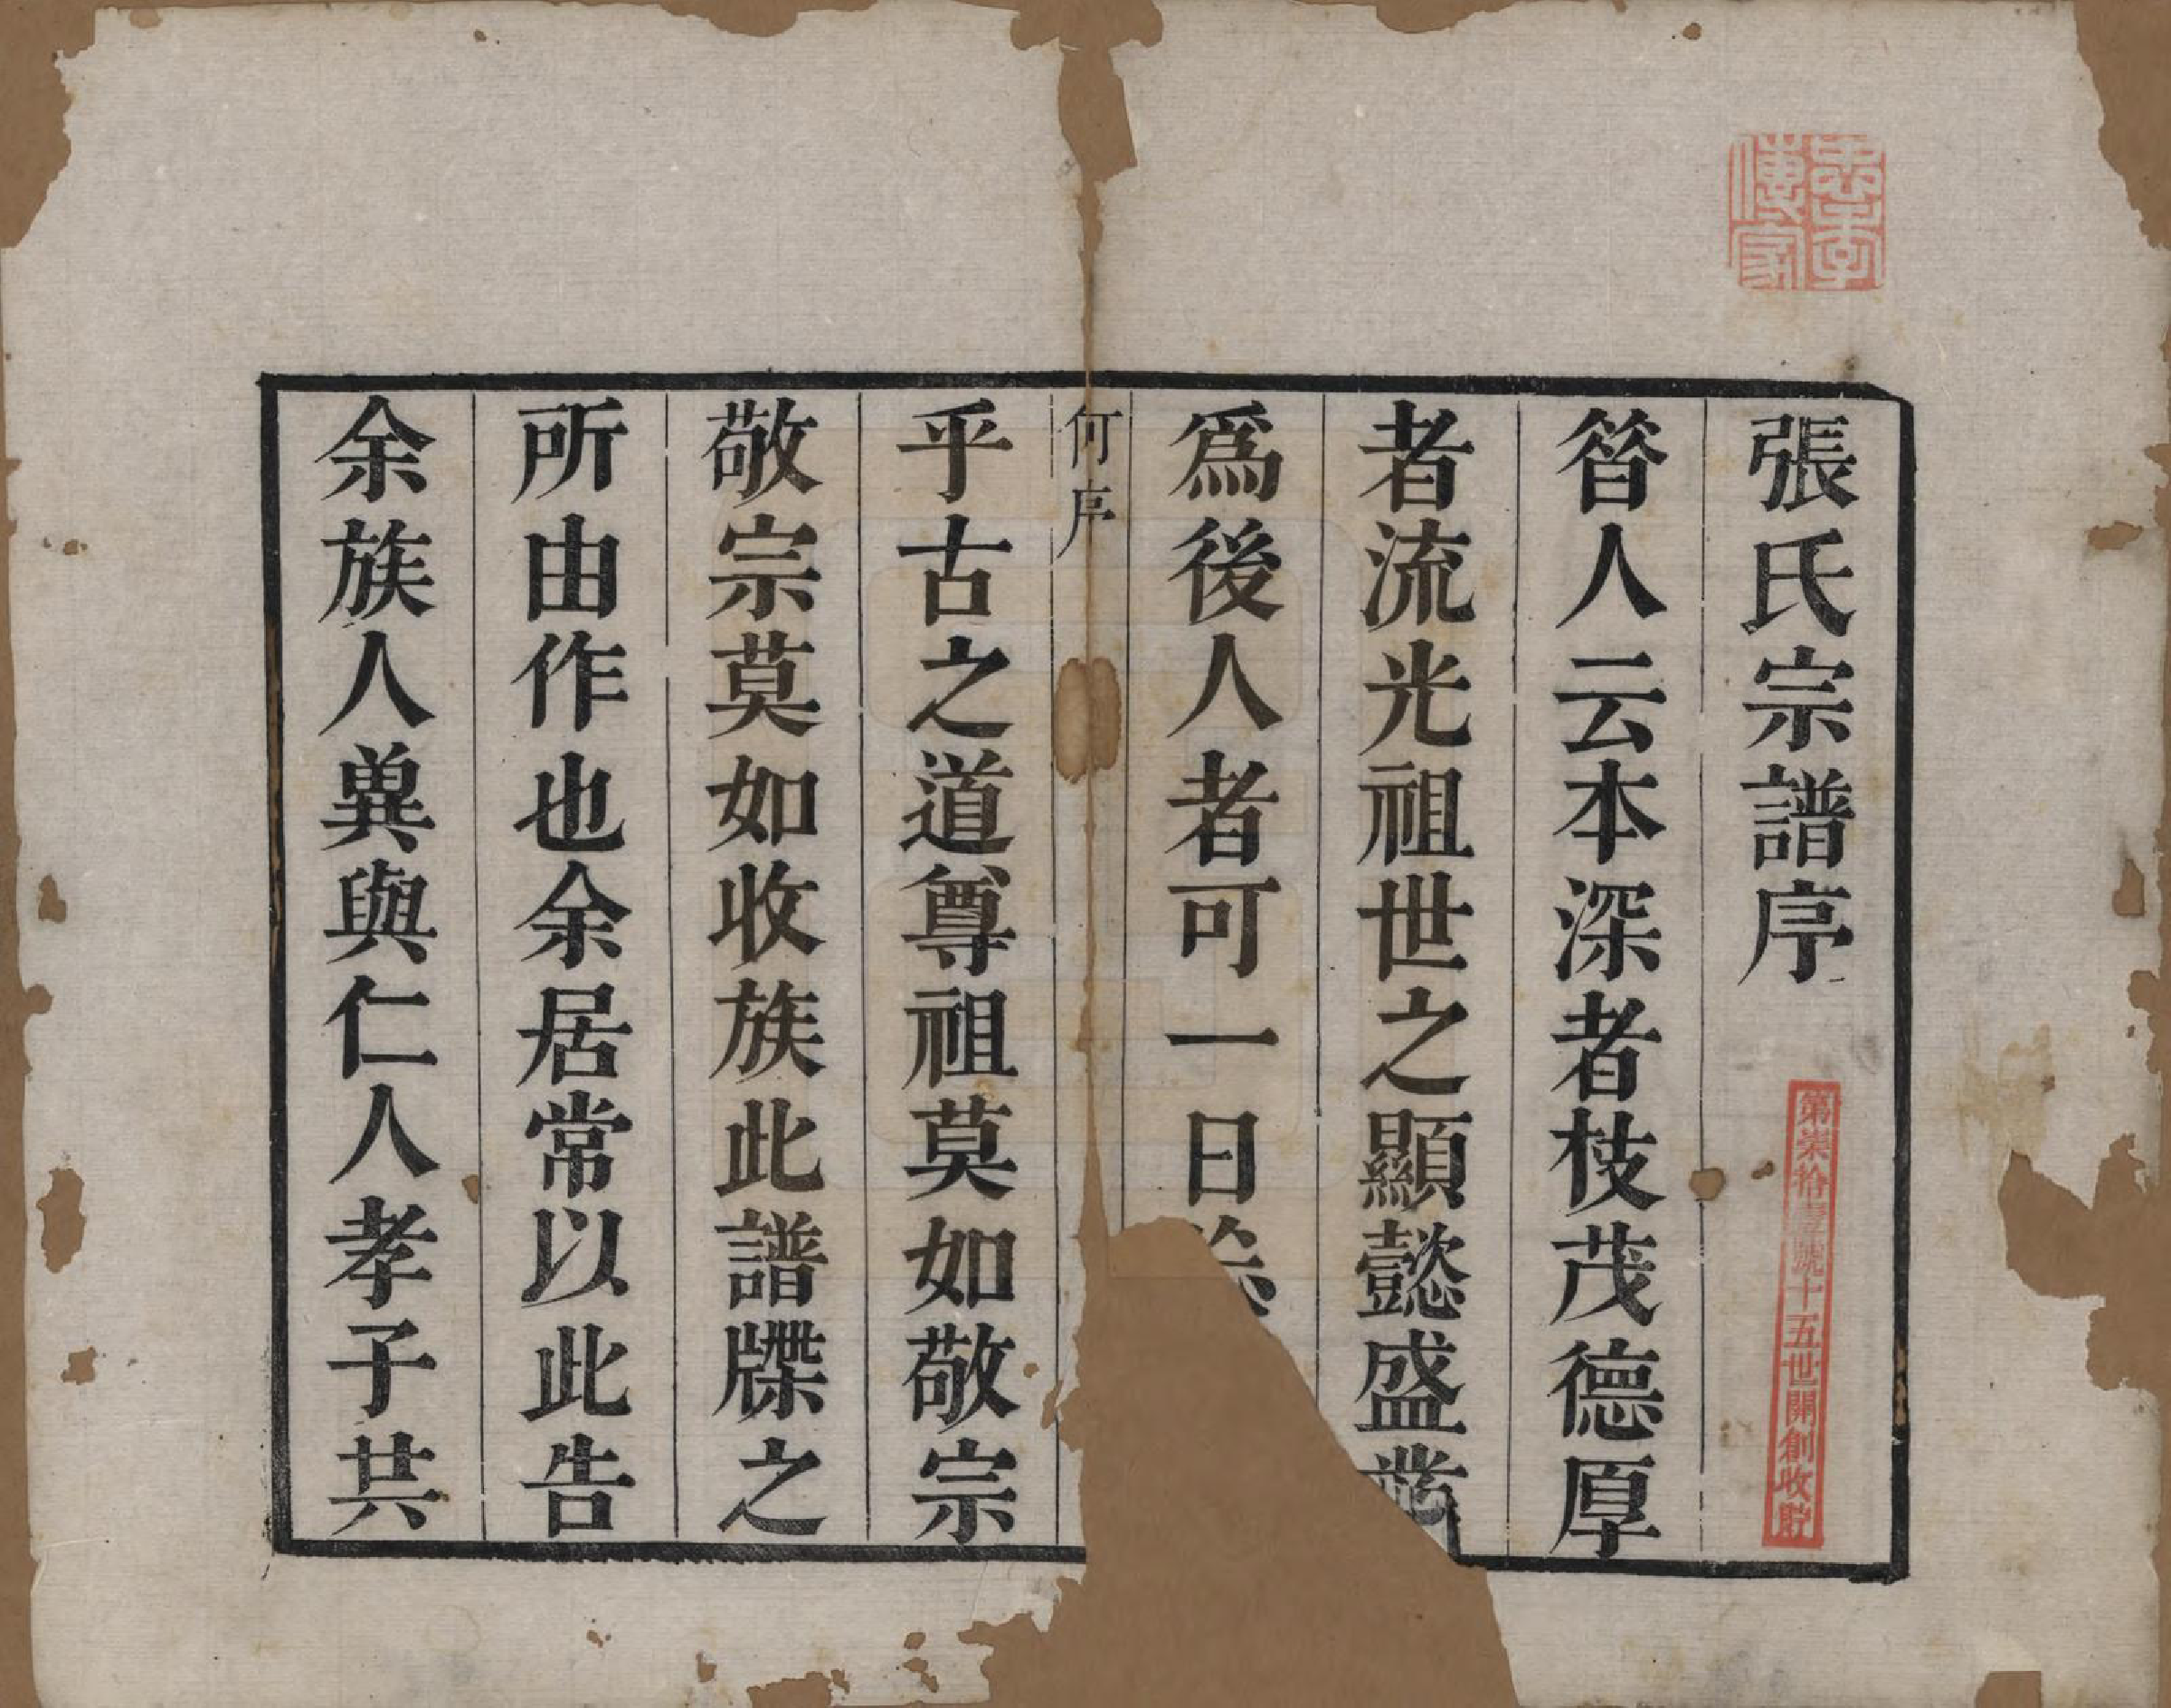 張氏宗譜序
昝人云本深者枝茂德厚
者流光祖世之顯懿盛業
爲後人者可一日
何序
乎古之道尊祖莫如敬宗
敬宗莫如收族此譜牒之
所由作也余居常以此告
余族人兾與仁人孝子共
忠孝傳家
第柒拾壹號十五世開創收貯